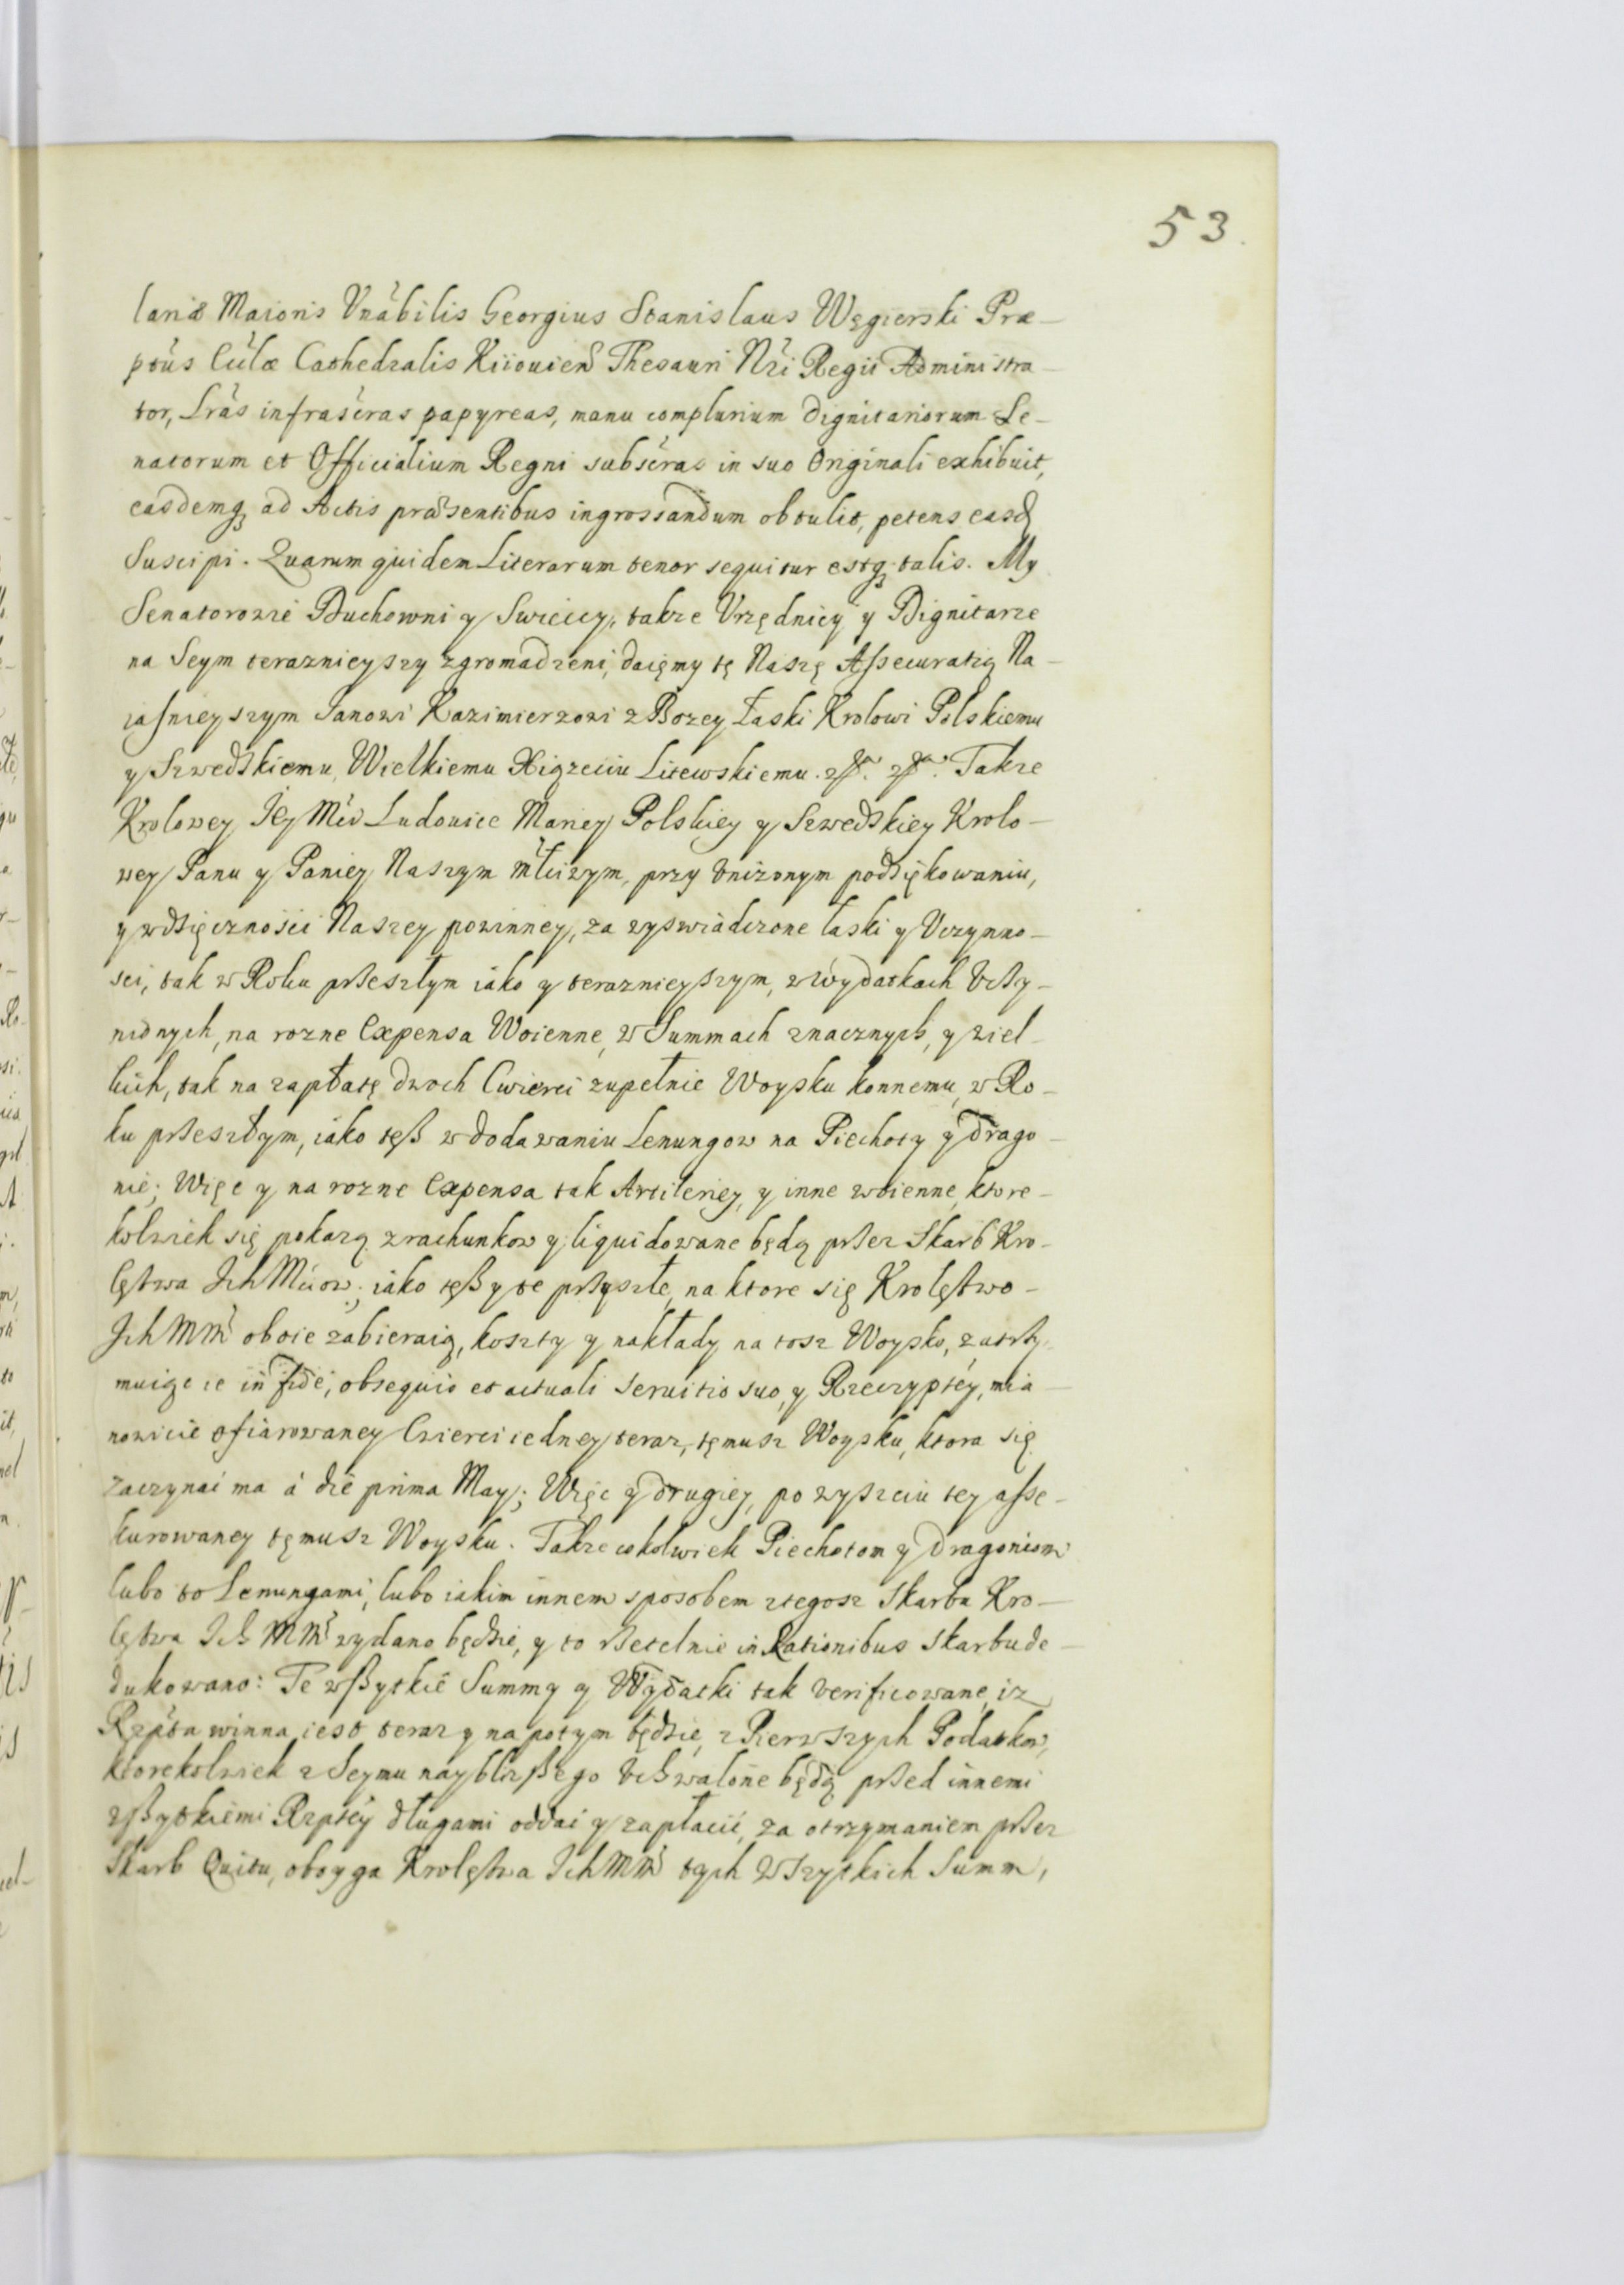 53.
laniæ Maioris Vnãbilis Georgius Stanislaus Węgierski Præ-
ptus Cúlæ Cathedralis Kiiouien Thesauri Nri Regii Administra-
tor, Lrás infrascras papyreas, manu complurium Dignitariorum Se-
natorum et Officialium Regni subscras in suo Originali exhibuit,
easdemq ad Actis præsentibus ingrossandum obtulit, petens easd
Suscipi. Quarum quidem Literarum tenor sequitur estq talis. My
Senatorowie Duchowni y Swieccy, takze Vrzędnicy y Dignitarze
na Seym terazniejszy zgromadzeni, daięmy tę Naszę Assecuratią Na-
iasnieyszym Janowi Kazimierzowi z Bozey Łaski Krolowi Polskiemu
y Szwedskiemu, Wielkiemu Xiązęciu Litewskiemu. Takze
Krolowey Jey Mci Ludouice Mariey Polskiey y Szwedskiey Krolo-
wey Panu y Paniey Naszym Młciwym, przy vniżonym podsiękowaniu,
y wdsięcznosci Naszey powinney, za wyswiadczone łaski y Vczynno-
sci, tak w Roku prseszłym iako y terazniejszym, w wydatkach Vcsy-
nionych, na rozne Expensa Woienne, w Summach znacznych, y wiel-
kich, tak na zapłatę dwoch Cwierci zupełnie Woysku konnemu, w Ro-
ku prseszłym, iako tęß w dodawaniu Lenungow na Piechoty y drago-
nie; Więc y na rozne Expensa tak Artileriey, y inne woienne, ktore-
kolwiek się pokazą z rachunkow y liquidowane będą prsez Skarb Kro-
lęstwa Ich Mciow; iako tęß y te prsyszłe, na ktore się Krolęstwo-
Ich MM oboie zabieraią, koszty y nakłady na tosz Woysko, zatrsy-
muiąc ie in fide, obsequio et actuali seruitio suo, y Rzeczyptey, mia-
nowicie ofiarowaney Cwierci iedney teraz, tęmusz Woysku, ktora się
zaczynać ma á die prima May; Więc y drugiey, po wyszciu tey asse-
kurowaney tęmusz Woysku. Takze cokolwiek Piechotom y Dragoniom
lubo to Lenungami, lubo iakim innem sposobem z tegosz Skarbu Kro-
lęstwa Ich MM wydano będzie, y to rsetelnie in Rationibus Skarbu de-
dukowano: Te wßytkie Summy y Wydatki tak verificowane, iz
Rzpta winna iest teraz y na potym będsie, z Pierwszych Podatkow,
ktorekolwiek z Seymu nayblizßego Vchwalone będą prsed innemi
wßytkiemi Rzptey długami oddać y zapłacić, za otrzymaniem prsez
Skarb Quitu, oboyga Krolęstwa Ich MM tych Wszytkich Summ,